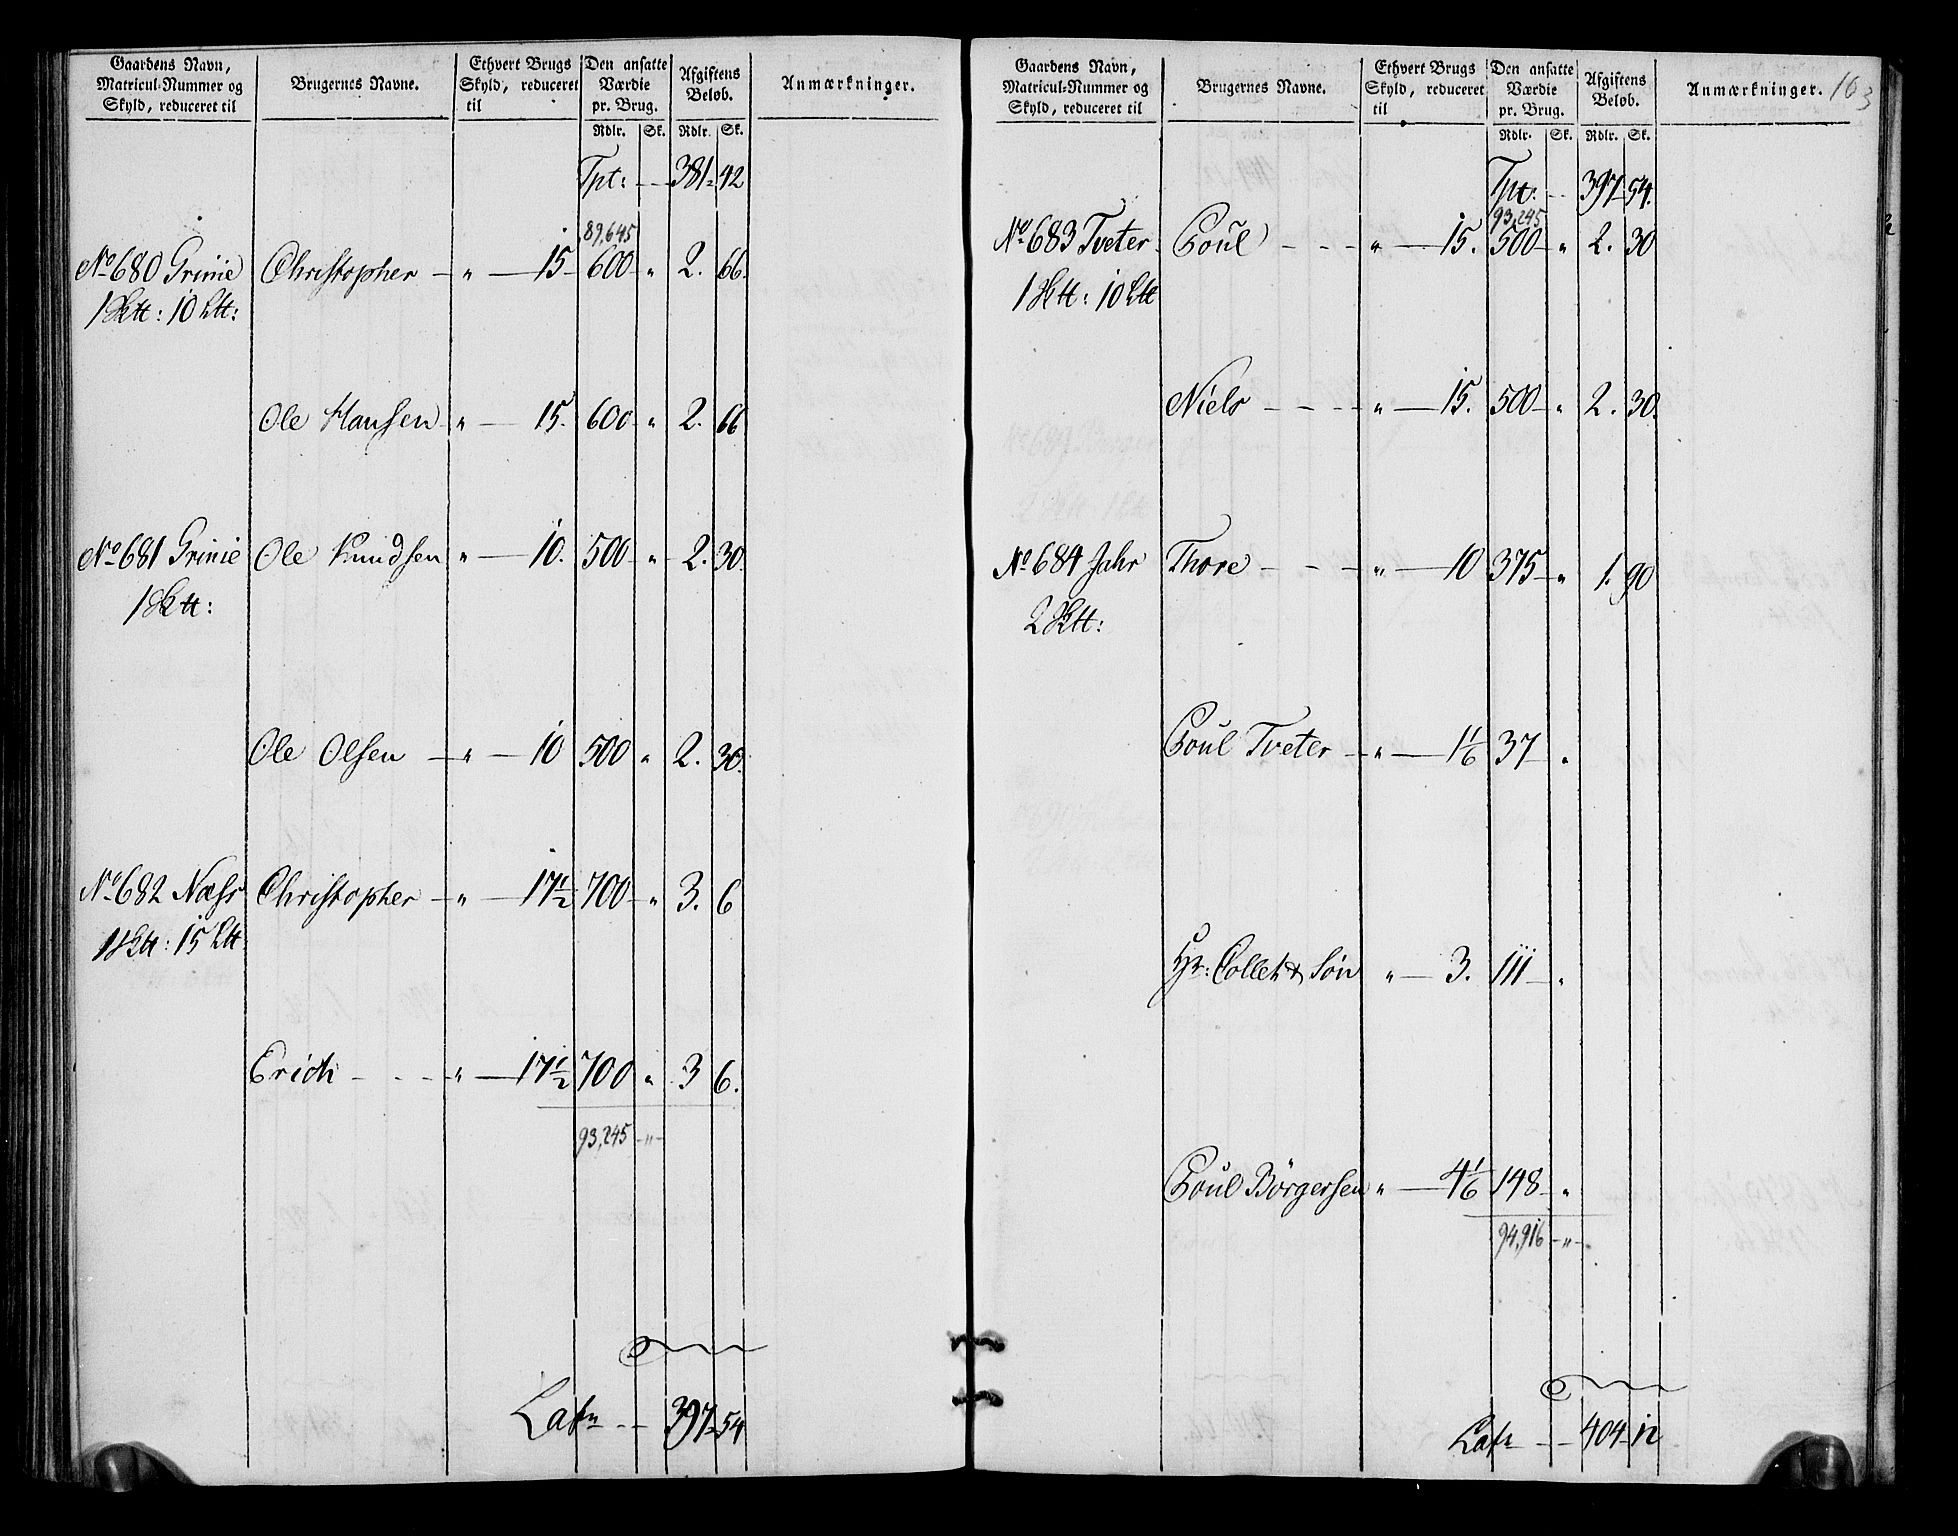 Gaardens Navn, Matricul-Nummer og Skyld, reduceret til | Brugernes Navne. | Ethvert Brugs Skyld, reduceret til | Den ansatte Værdie pr. Brug. Rdlr. Sk. | Afgiftens Beløb. Rdlr. Sk. | Anmærkninger.
Tpt: — 381 = 42
89,645
No 680 Grinie Christopher — " — 15 — 600 — " 2. 66.
1 Sktt: 10 Ltt:
Ole Hansen — " — 15. 600 — " 2. 66
No 681 Grinie Ole Knudsen " — 10. 500 — " 2. 30.
1 Sktt:
Ole Olsen — " — 10 500 " 2. 30.
No 682 Næss Christopher — " — 17 1/2 700 — " 3. 6
1 Sktt: 15 Ltt
Erich — — " — 17 1/2 700 " 3 6.
93,245 — " —
Latr — — 397 = 54
Gaardens Navn, Matricul-Nummer og Skyld, reduceret til | Brugernes Navne. | Ethvert Brugs Skyld, reduceret til | Den ansatte Værdie pr. Brug. Rdlr. Sk. | Afgiftens Beløb. Rdlr. Sk. | Anmærkninger. 163
Tpt: — 397 54.
93,245
No 683 Tveter Poul — — — " — 15. 500 — " 2. 30
1 Sktt: 10 Ltt
Niels — — — " — 15. 500 — " 2. 30.
No 684 Jahr Thore — — — " — 10 375 — " 1. 90
2 Sktt:
Poul Tveter — " — 1 1/6 37 — "
Hr: Collet & Søn " — 3. 111 — "
Poul Börgersen " — 4 1/6 148 — "
94,916 — " —
Latr — — 404 — 12